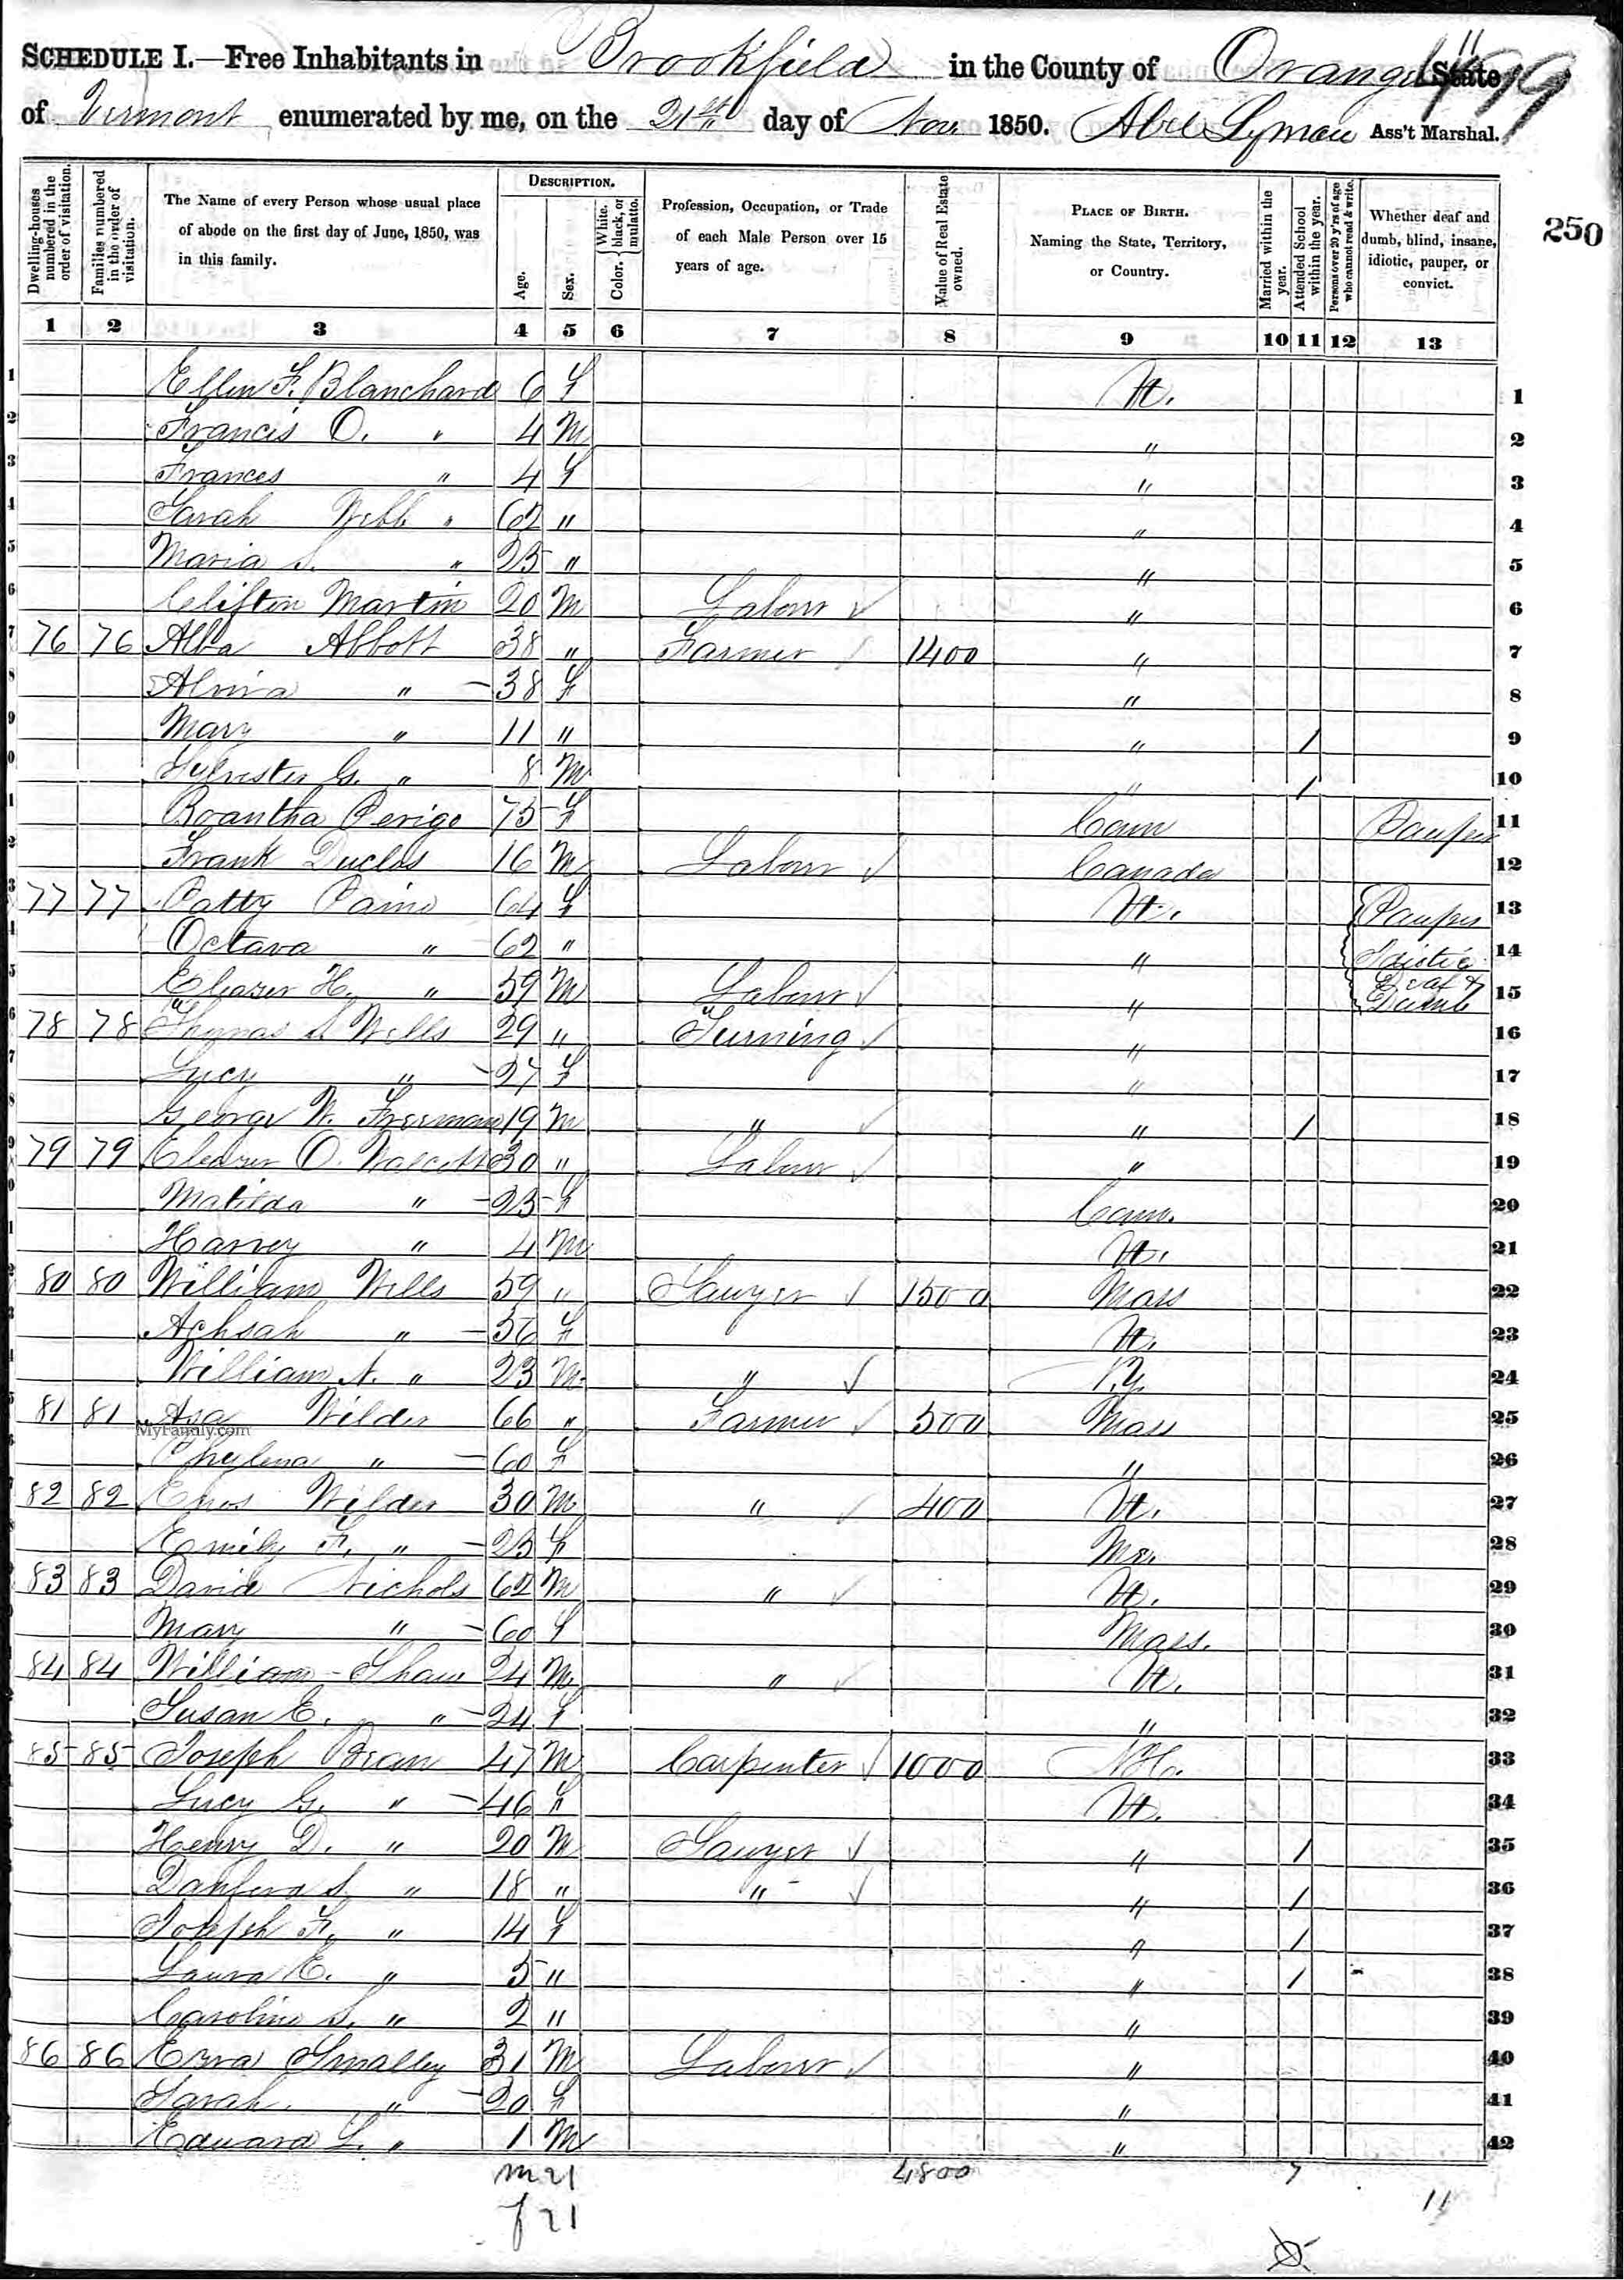 SCHEDULE I.—Free Inhabitants in Brookfield in the County of Orange State 499
of Vermont enumerated by me, on the 21st day of Nov. 1850. Abel Lyman Ass't Marshal.
250
Dwelling-houses numbered in the order of visitation.
Families numbered in the order of visitation.
The Name of every Person whose usual place of abode on the first day of June, 1850, was in this family.
DESCRIPTION.
Age.
Sex.
Color. { White, black, or mulatto.
Profession, Occupation, or Trade of each Male Person over 15 years of age.
Value of Real Estate owned.
PLACE OF BIRTH. Naming the State, Territory, or Country.
Married within the year.
Attended School within the year.
Persons over 20 y'rs of age who cannot read & write.
Whether deaf and dumb, blind, insane, idiotic, pauper, or convict.
1 2 3 4 5 6 7 8 9 10 11 12 13
1 Ellen F. Blanchard 6 F Vt. 1
2 Francis O. " 4 M " 2
3 Frances " 4 F " 3
4 Sarah Webb " 62 " " 4
5 Maria S. " 25 " " 5
6 Clifton Martin 20 M Labour ✓ " 6
7 76 76 Alba Abbott 38 " Farmer ✓ 1400 " 7
8 Alvira " – 38 F " 8
9 Mary " 11 " " / 9
0 Sylvester G. " 8 M " / 10
1 Roantha Perigo 75 F Conn Pauper 11
2 Frank Duclos 16 M Labour ✓ Canada 12
3 77 77 Patty Paine 64 F Vt. Pauper 13
4 Octava " 62 " " Idiotic 14
5 Eleazer H. " 59 M Labour ✓ " Deaf & Dumb 15
6 78 78 Thomas S. Wells 29 " Turning ✓ " 16
7 Lucy " – 27 F " 17
8 George W. Freeman 19 M " ✓ " / 18
9 79 79 Eleazer O. 30 " Labour ✓ " 19
0 Matilda " – 23 F Conn. 20
1 Harvey " 4 M Vt. 21
2 80 80 William Wells 59 " Sawyer ✓ 1500 Mass 22
3 Achsah " – 56 F Vt. 23
4 William A. " 23 M " ✓ N.Y. 24
5 81 81 Asa Wilder 66 " Farmer ✓ 500 Mass 25
MyFamily.com
6 " – 60 F " 26
82 82 Enos Wilder 30 M " ✓ 400 Vt. 27
Emily F. " – 23 F Me. 28
83 83 David Nichols 62 M " ✓ Vt. 29
Mary " – 60 F Mass. 30
84 84 William Shaw 24 M " ✓ Vt. 31
Susan E. " – 24 F " 32
85 85 Joseph Bean 47 M Carpenter ✓ 1000 N.H. 33
Lucy G. " – 46 F Vt. 34
Henry D. " 20 M Sawyer ✓ " / 35
Danford S. " 18 " " ✓ " / 36
Joseph F. " 14 F " / 37
Laura E. " 5 " " / 38
Caroline S. " 2 " " 39
86 86 Ezra Smalley 31 M Labour ✓ " 40
Sarah " – 20 F " 41
Edward L. " 1 M " 42
m 21 4800 7
f 21 11